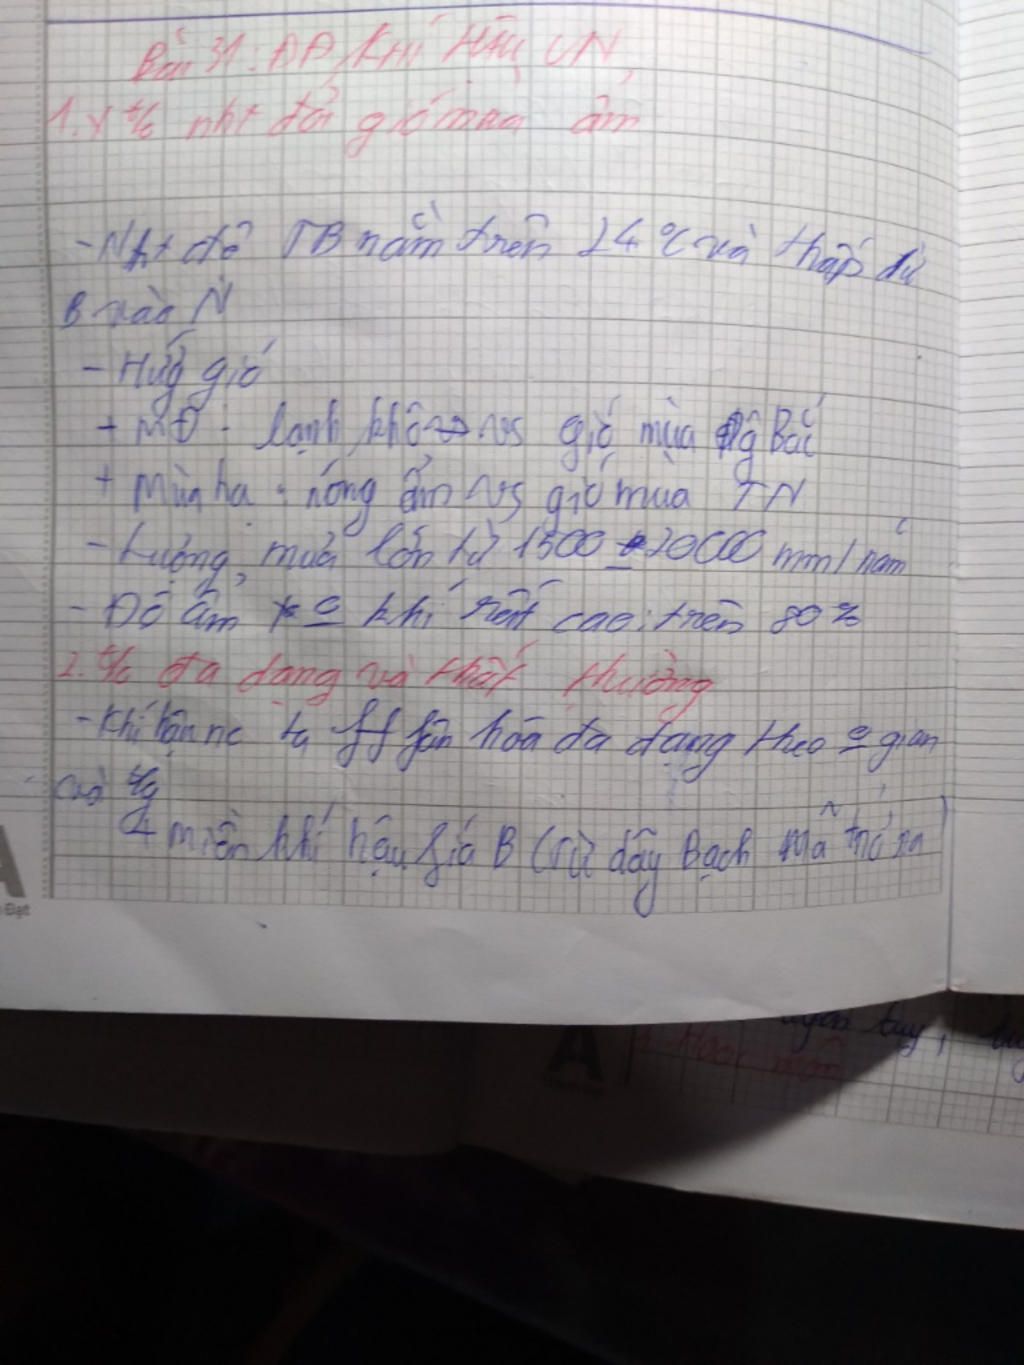 Bài 31: ĐĐ KHÍ HẬU VN
1. t/c nht đới gió mùa ẩm
- Nht độ TB năm trên 24°C và thấp từ
B vào N
- Hưg gió
+ MĐ: lạnh khô vs gió mùa Đg Bắc
+ Mùa hạ: nóng ẩm vs gió mùa TN
- Lượng mưa lớn từ 1500 20000 mm/năm
- Độ ẩm khí rất cao: trên 80%
2. t/c đa dạng và thất thường
- Khí hậu nc ta hóa đa dạng theo gian
4 miền khí hậu B (từ dãy Bạch Mã trở ra
A
Đạt
A
tuy,